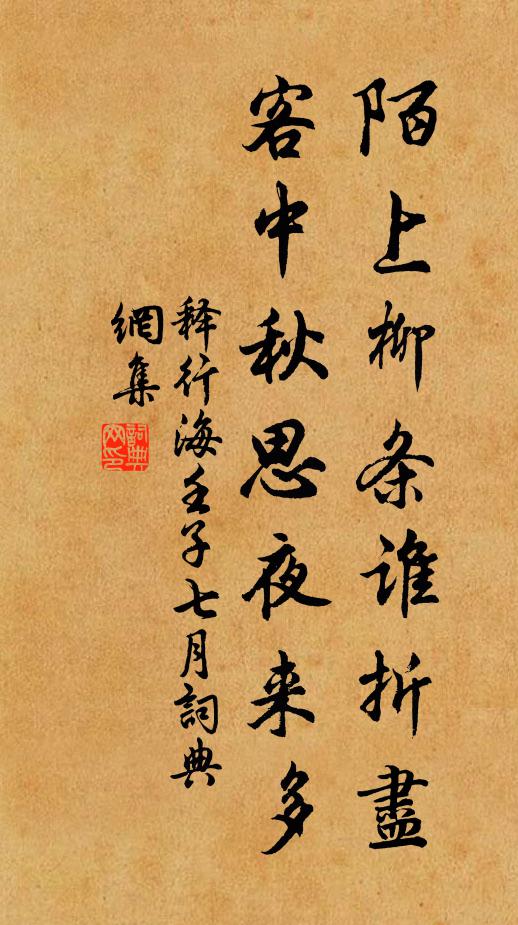 陌上柳条谁折盡
客中秋思夜来多
释行海壬子七月詞典
網集
詞典
网印